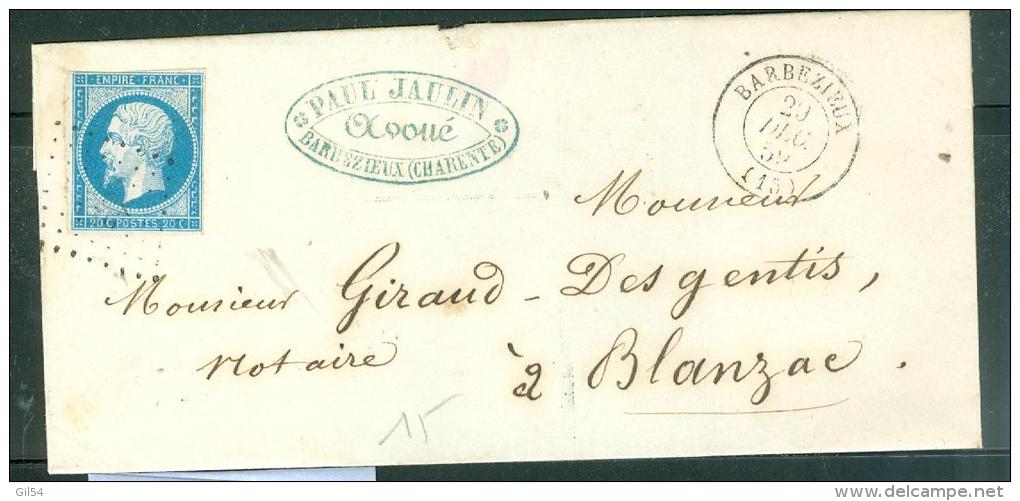 EMPIRE · FRANC ·
20 C POSTES 20 C
PAUL JAULIN
Avoué
BARBEZIEUX (CHARENTE)
BARBEZIEUX
29
DEC.
(15)
Monsieur
Monsieur Giraud - Desgentis,
Notaire à Blanzac.
15
Gil54
delcampe.net